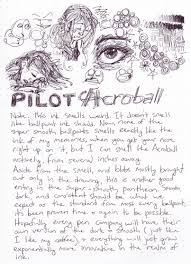 PILOT Acroball
Note: this ink smells weird. It doesn't smell
like ballpoint ink should. Now none of the
super smooth ballpoints smells exactly like the ink
of my memories, when you get your nose
right up on it, but I can smell the Acroball
actively, from several inches away.
Aside from the smell, and blobs mostly brought
out only in the drawing, this is another good
entry in the super-smooth pantheon. Smooth,
dark, and consistent should be what we
expect as the standard from most every ballpoint,
its been proven time & again to be possible.
Hopefully every pen company will have their
own version of the dark & smooth (just like
I like my coffee), & everything will get more
exponentially more innovative in the realm of
ink.